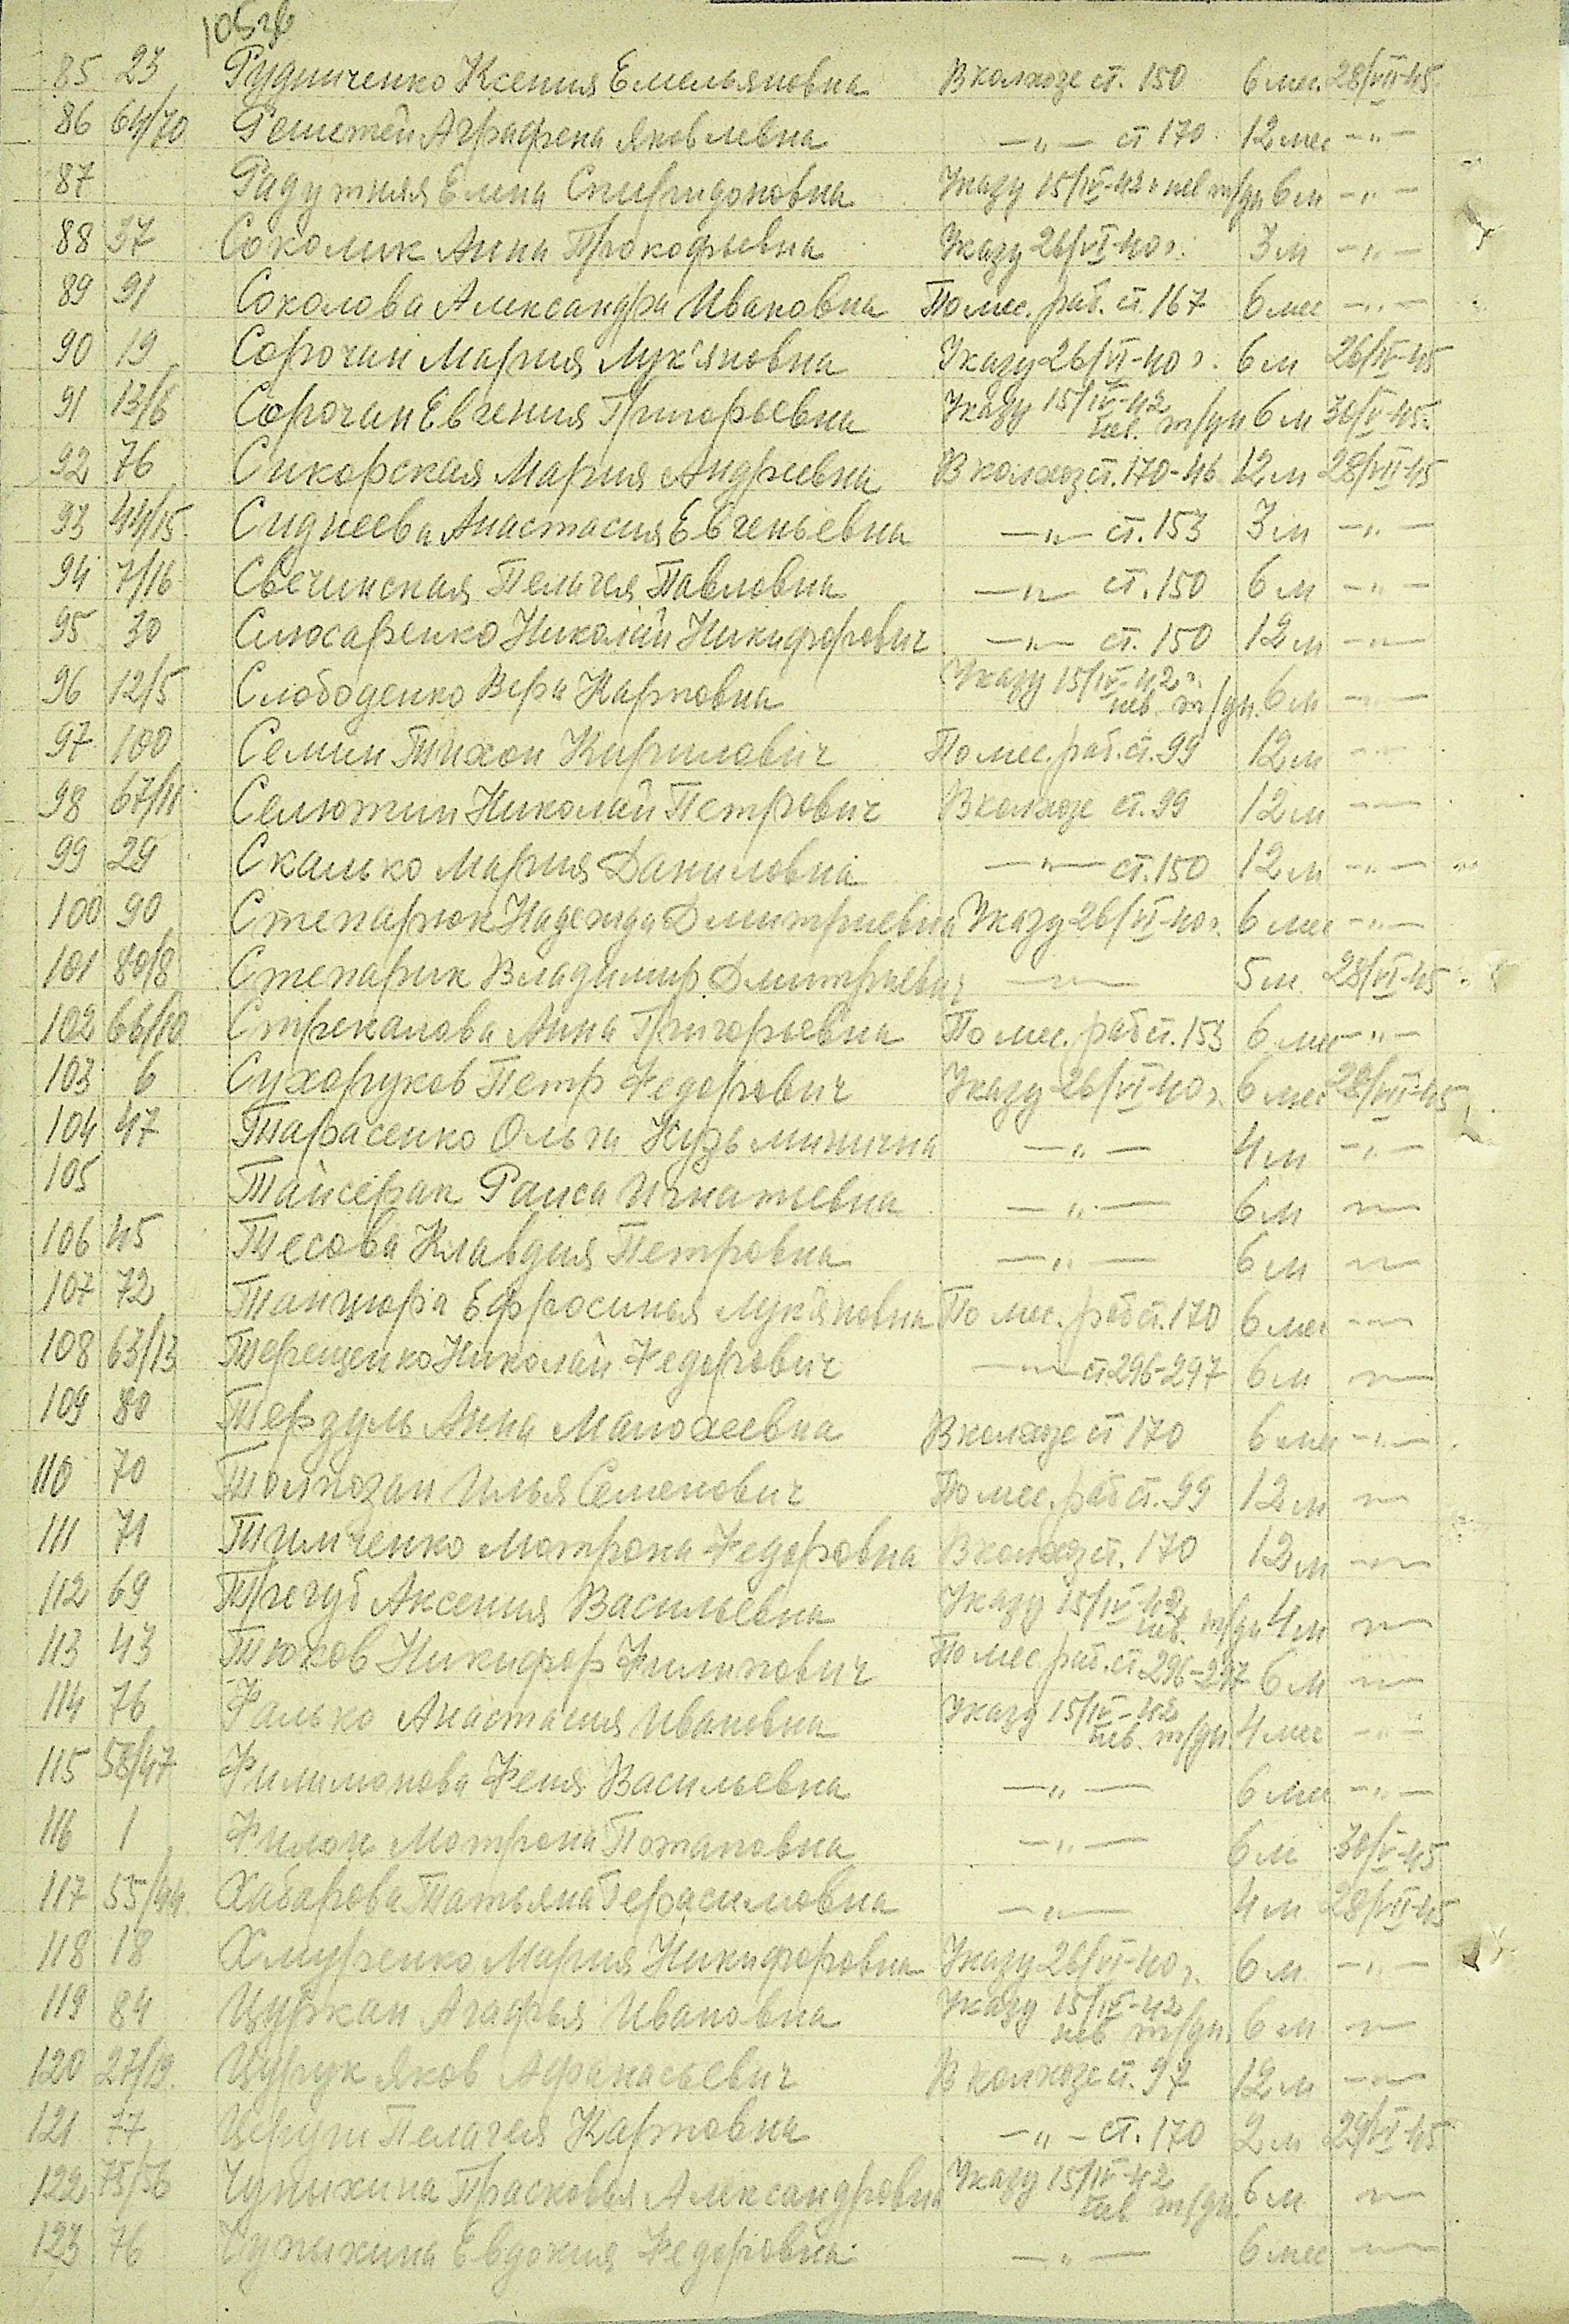 85 23 Рудниченко Ксения Емельяновна В колхозе ст. 150 6 мес. 28/VII-45.
86 64/70 Решетей Аграфена Яковлевна —„— ст 170 12 мес —„—
87 Радутняя Елена Спиридоновна Указу 15/IV-42г нев т/дн 6 м —„—
88 37 Соколик Анна Прокофьевна Указу 26/VI-40г. 3 м —„—
89 91 Соколова Александра Ивановна По мес. раб. ст. 167 6 мес —„—
90 19 Сорочан Мария Лук'яновна Указу 26/VI-40г. 6 м 26/IV-45
91 13/6 Сорочан Евгения Григорьевна Указу 15/IV-42 нев. т/дн 6 м 30/V-45.
92 76 Сикорская Мария Андреевна В колхоз ст. 170-46 12 м 28/VII-45
93 44/15 Сиднеева Анастасия Евгеньевна —„— ст. 153 3 м —„—
94 7/16 Свечинская Пелагея Павловна —„— ст. 150 6 м —„—
95 30 Слюсаренко Николай Никифорович —„— ст. 150 12 м —„—
96 12/5 Слободенко Вера Карповна Указу 15/IV-42г. нев. т/дн. 6 м —„—
97 100 Семин Тихон Кирилович По мес. раб. ст. 99 12 м —„—
98 67/11 Селютин Николай Петрович В колхозе ст. 99 12 м —„—
99 29 Скалько Мария Даниловна —„— ст. 150 12 м —„—
100 90 Степарюк Надежда Дмитриевна Указу 26/VI-40г. 6 мес —„—
101 80/8 Степарик Владимир Дмитриевич —„— 5 м. 28/VI-45
102 66/10 Стрекалова Анна Григорьевна По мес. раб ст. 153 6 мес —„—
103 6 Сухоруков Петр Федорович Указу 26/VI-40г. 6 мес 28/VII-45
104 47 Тарасенко Ольга Кузьминична —„— 4 м —„—
105 Тайсерак Раиса Игнатьевна —„— 6 м —„—
106 45 Тесова Клавдия Петровна —„— 6 м —„—
107 72 Танцюра Ефросинья Лук'яновна По мес. раб ст. 170 6 мес —„—
108 63/13 Терещенко Николай Федорович —„— ст 296-297 6 м —„—
109 80 Терзуль Анна Малохеевна В колхозе ст 170 6 мес —„—
110 70 Толпозан Илья Семенович По мес. раб ст. 99 12 м —„—
111 71 Тимченко Мотрона Федоровна В колхоз ст. 170 12 м —„—
112 69 Трегуб Аксения Васильевна Указу 15/IV-42 нев. т/дн 4 м —„—
113 43 Тюков Никифор Филипович По мес раб. ст 296-297 6 м —„—
114 76 Фалько Анастасия Ивановна Указу 15/IV-42 нев. т/дн. 4 мес —„—
115 58/47 Филимонова Феня Васильевна —„— 6 мес —„—
116 1 Филон Мотрона Потаповна —„— 6 м 30/V-45
117 55/44. Хабарова Татьяна Герасимовна —„— 4 м 28/VII-45
118 18 Хмуренко Мария Никифоровна Указу 26/VI-40г. 6 м. —„—
119 84 Цуркан Агафья Ивановна Указу 15/IV-42 нев т/дн. 6 м —„—
120 27/19. Цурук Яков Афанасьевич В колхозе ст. 97 12 м —„—
121 77 Церуш Пелагея Карповна —„— ст. 170 2 м 29/VI-45
122 75/56 Чупыхина Прасковья Александровна Указу 15/IV-42 нев т/дн. 6 м. —„—
123 76 Чупыхина Евдокия Федоровна —„— 6 мес —„—